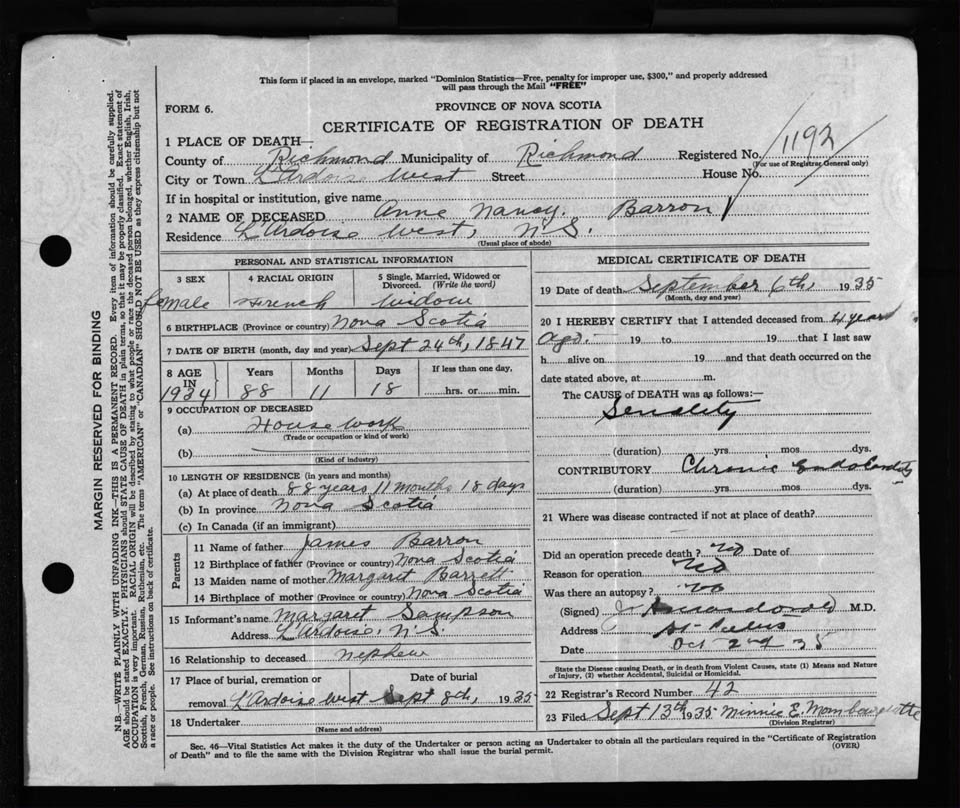 This form if placed in an envelope, marked "Dominion Statistics—Free, penalty for improper use, $300," and properly addressed
will pass through the Mail "FREE"
FORM 6.
PROVINCE OF NOVA SCOTIA
CERTIFICATE OF REGISTRATION OF DEATH
1 PLACE OF DEATH—
County of Richmond Municipality of Richmond Registered No. 1192
(For use of Registrar General only)
City or Town L'Ardoise West Street House No.
If in hospital or institution, give name
2 NAME OF DECEASED Anne Nancy Barron
Residence L'Ardoise West, N.S.
(Usual place of abode)
PERSONAL AND STATISTICAL INFORMATION
3 SEX 4 RACIAL ORIGIN 5 Single, Married, Widowed or Divorced. (Write the word)
female French widow
6 BIRTHPLACE (Province or country) Nova Scotia
7 DATE OF BIRTH (month, day and year) Sept 24th, 1847
8 AGE IN Years Months Days If less than one day,
1934 88 11 18 hrs. or min.
9 OCCUPATION OF DECEASED
(a) House work
(Trade or occupation or kind of work)
(b)
(Kind of industry)
10 LENGTH OF RESIDENCE (in years and months)
(a) At place of death 88 years 11 months 18 days
(b) In province Nova Scotia
(c) In Canada (if an immigrant)
Parents
11 Name of father James Barron
12 Birthplace of father (Province or country) Nova Scotia
13 Maiden name of mother Margaret Barrett
14 Birthplace of mother (Province or country) Nova Scotia
15 Informant's name Margaret Sampson
Address L'Ardoise, N.S.
16 Relationship to deceased Nephew
17 Place of burial, cremation or removal Date of burial
L'Ardoise West Sept 8th, 1935
18 Undertaker
(Name and address)
MEDICAL CERTIFICATE OF DEATH
19 Date of death September 6th, 1935
(Month, day and year)
20 I HEREBY CERTIFY that I attended deceased from 4 years
ago. 19 to 19 that I last saw
h alive on 19 and that death occurred on
date stated above, at m.
The CAUSE of DEATH was as follows:—
Senality
(duration) yrs. mos. dys.
CONTRIBUTORY Chronic Endocarditis
(duration) yrs. mos. dys.
21 Where was disease contracted if not at place of death?
Did an operation precede death? No Date of
Reason for operation No
Was there an autopsy? No
(Signed) M.D.
Address St. Peters
Date Oct 2nd 35
State the Disease causing Death, or in death from Violent Causes, state (1) Means and Nature
of Injury, (2) whether Accidental, Suicidal or Homicidal.
22 Registrar's Record Number 42
23 Filed Sept 13th 1935 Minnie E. Mombourquette
(Division Registrar)
Sec. 46—Vital Statistics Act makes it the duty of the Undertaker or person acting as Undertaker to obtain all the particulars required in the "Certificate of Registration
of Death" and to file the same with the Division Registrar who shall issue the burial permit.
(OVER)
MARGIN RESERVED FOR BINDING
N.B.—WRITE PLAINLY WITH UNFADING INK—THIS IS A PERMANENT RECORD. Every item of information should be carefully supplied.
AGE should be stated EXACTLY. PHYSICIANS should STATE CAUSE OF DEATH in plain terms, so that it may be properly classified. Exact statement of
OCCUPATION is very important. RACIAL ORIGIN will be described by stating to what people or race the deceased person belonged, whether English, Irish,
Scottish, French, German, Russian, Ruthenian, etc. The terms "AMERICAN" or "CANADIAN" SHOULD NOT BE USED as they express citizenship but not
a race or people. See instructions on back of certificate.